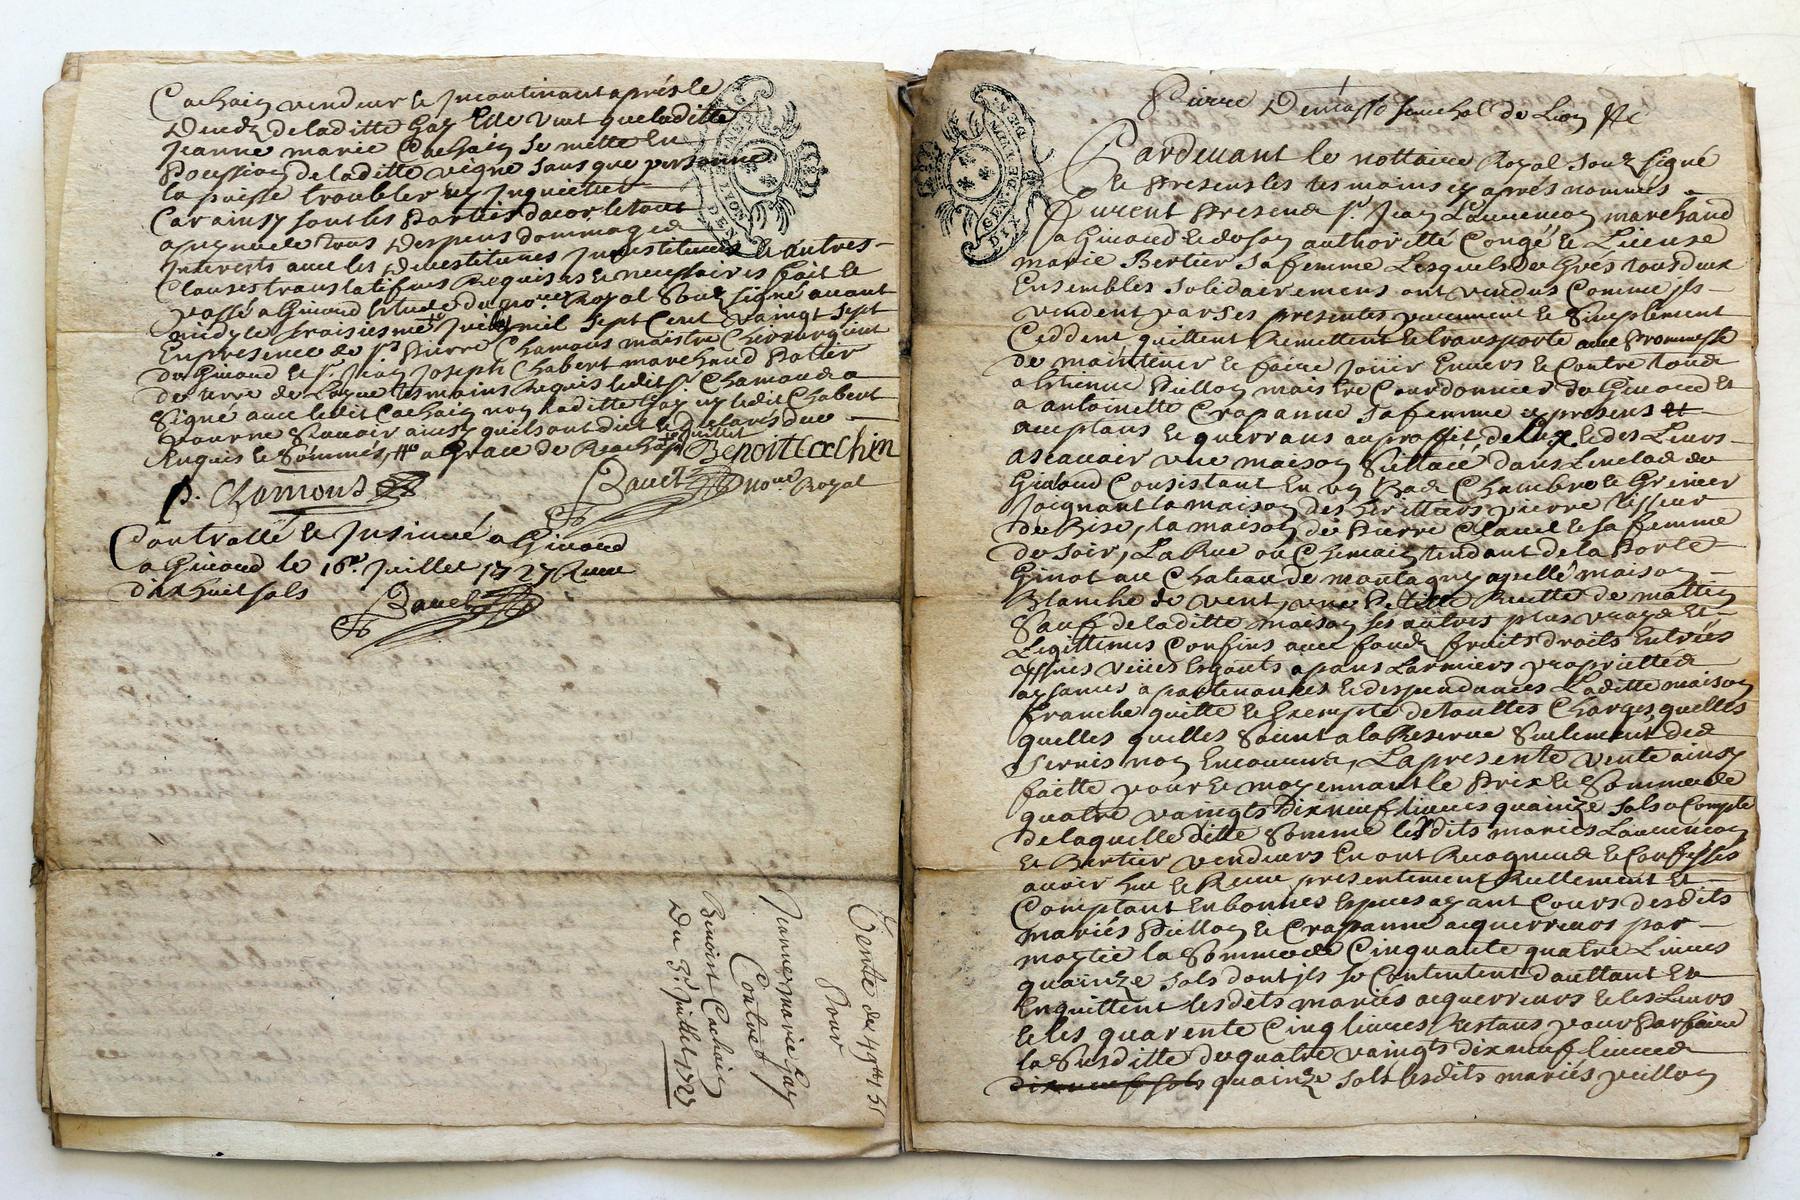 Cachain vendeur & Incontinant aprés le
deceds de laditte Gay Elle veut que laditte
Jeanne marie Cachain se mette En
Possession de laditte vigne sans que personne
la puisse troubler ny Inquietter
Car ainsy sont les Parties dacor le tout
a peyne de tous despens dommages
Interests avec les & autres
Clauses translatifves Requises & necessaires fait &
passé a Givord Estude du no.re Royal Souz signé avant
midy le troisieme Juillet mil sept Cent vaingt sept
En presence de s.r Pierre Chamous maistre Chirurgient
de Givord et s.r Jean Joseph Chabert marchand Potier
de terre de tesmoins Requis ledit s.r Chamous a
Signé avec ledit Cachain non laditte Gay ny ledit Chabert
pour ne Scavoir ainsy quils ont dict & declaré de ce
Enquis & Sommés, a Grace de Reachept Benoitt cachin
p. Chamous Bauet no.re Royal
Controllé & Insinué a Givord
a Givord le 16.e Juillet 1727 Receu
dix huit sols
Bauet
Vente de 49 15
Pour
Jeanne marie Gay
Contre
Benoist Cachain
Du 3.e Juillet 1727
DE LION
GEN
Pierre senechal de Lion
Pardevant le nottaire Royal Souz signé
& Presens les tesmoins cy aprés nommés
Furent Presens s.r Jean Laurencon marchand
a Givord & de son authoritté Congé & License
marie Bertier sa femme Lesquels de Grés tous deux
Ensembles Solidairement ont vendus Comme Ils
vendent par ses presentes purement & Simplement
Ceddent quittent Remettent & transporte avec Promesse
de maintenir & faire Jouir Envers & Contre tous
a Estienne Pullon maistre Courdonnier de Givord Et
a antoinette Crapanne sa femme cy presens et
acceptans & quereurs au proffit de Eux & des Leurs
ascavoir une maison Sittuéé dans Lenclos de
Givord Consistant En un Bas Chambre & Grenier
Joignant la maison des herittiers pierre tisseur
de Bise, La maison de Pierre Clavel & sa femme
de soir, La Rue ou Chemain tendant de la Porte
Ginot au Chateau de montagny apellé maison
Blanche de vent, une Petitte Ruette de mattin
Sauf de laditte maison ses autres plus vrays Et
Legittimes Confins avec fonds fruits droits Entrées
yssues veües Esgouts apans Larmiers proprietté
aysances apartenances & despendances Laditte maison
franche quitte & Exempte de touttes Charges quelles
quelles quelles Soient a la Reserve Seulement des
servis non Encourus, La presente vente ainsy
faitte pour & moyennant le Prix & Somme de
quatre vaingts dix neuf livres quainze sols a Compte
de laquelle ditte Somme lesdits mariés Laurencon
et Bertier vendeurs En ont Recogneus & Confessés
avoir heu & Receu presentement Reellement Et
Comptant En bonnes Especes ayant Cours desdits
mariés Pullon & Crapanne acquerreurs par
moytié la Somme de Cinquante quatre Livres
quainze sols dont Ils se Contentent dauttant En
Enquittent lesdits mariés acquerreurs & les Leurs
& les quarente Cinq livres Restans pour Parfaire
la Susditte de quatre vaingts dix neuf livres
dix neuf sols quainze sols lesdits mariés pullon